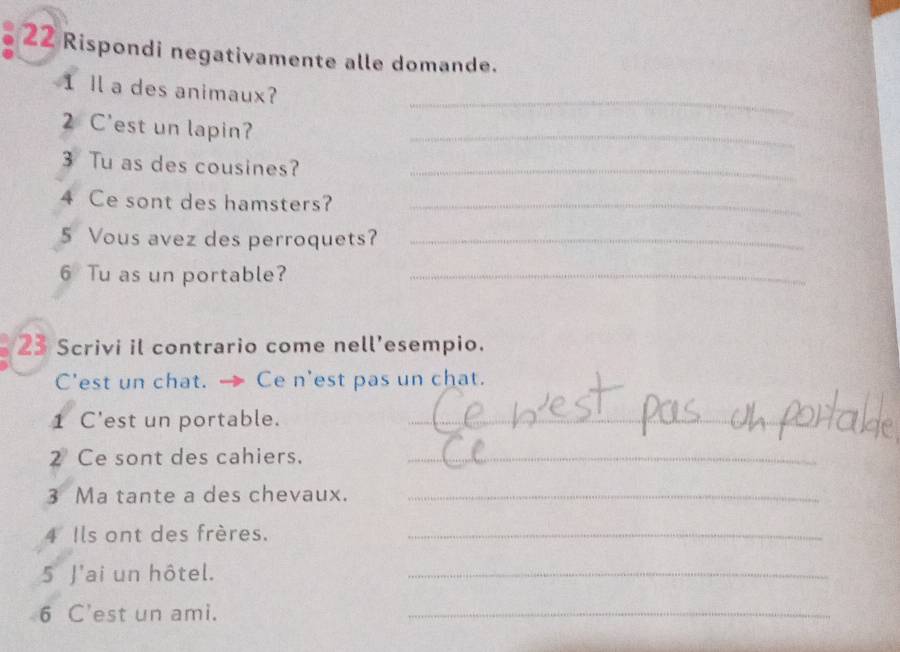 22 Rispondi negativamente alle domande.
1 Il a des animaux?
2 C'est un lapin?
3 Tu as des cousines?
4 Ce sont des hamsters?
5 Vous avez des perroquets?
6 Tu as un portable?
23 Scrivi il contrario come nell'esempio.
C'est un chat. → Ce n'est pas un chat.
1 C'est un portable. Ce n'est pas un portable.
2 Ce sont des cahiers. Ce
3 Ma tante a des chevaux.
4 Ils ont des frères.
5 J'ai un hôtel.
6 C'est un ami.